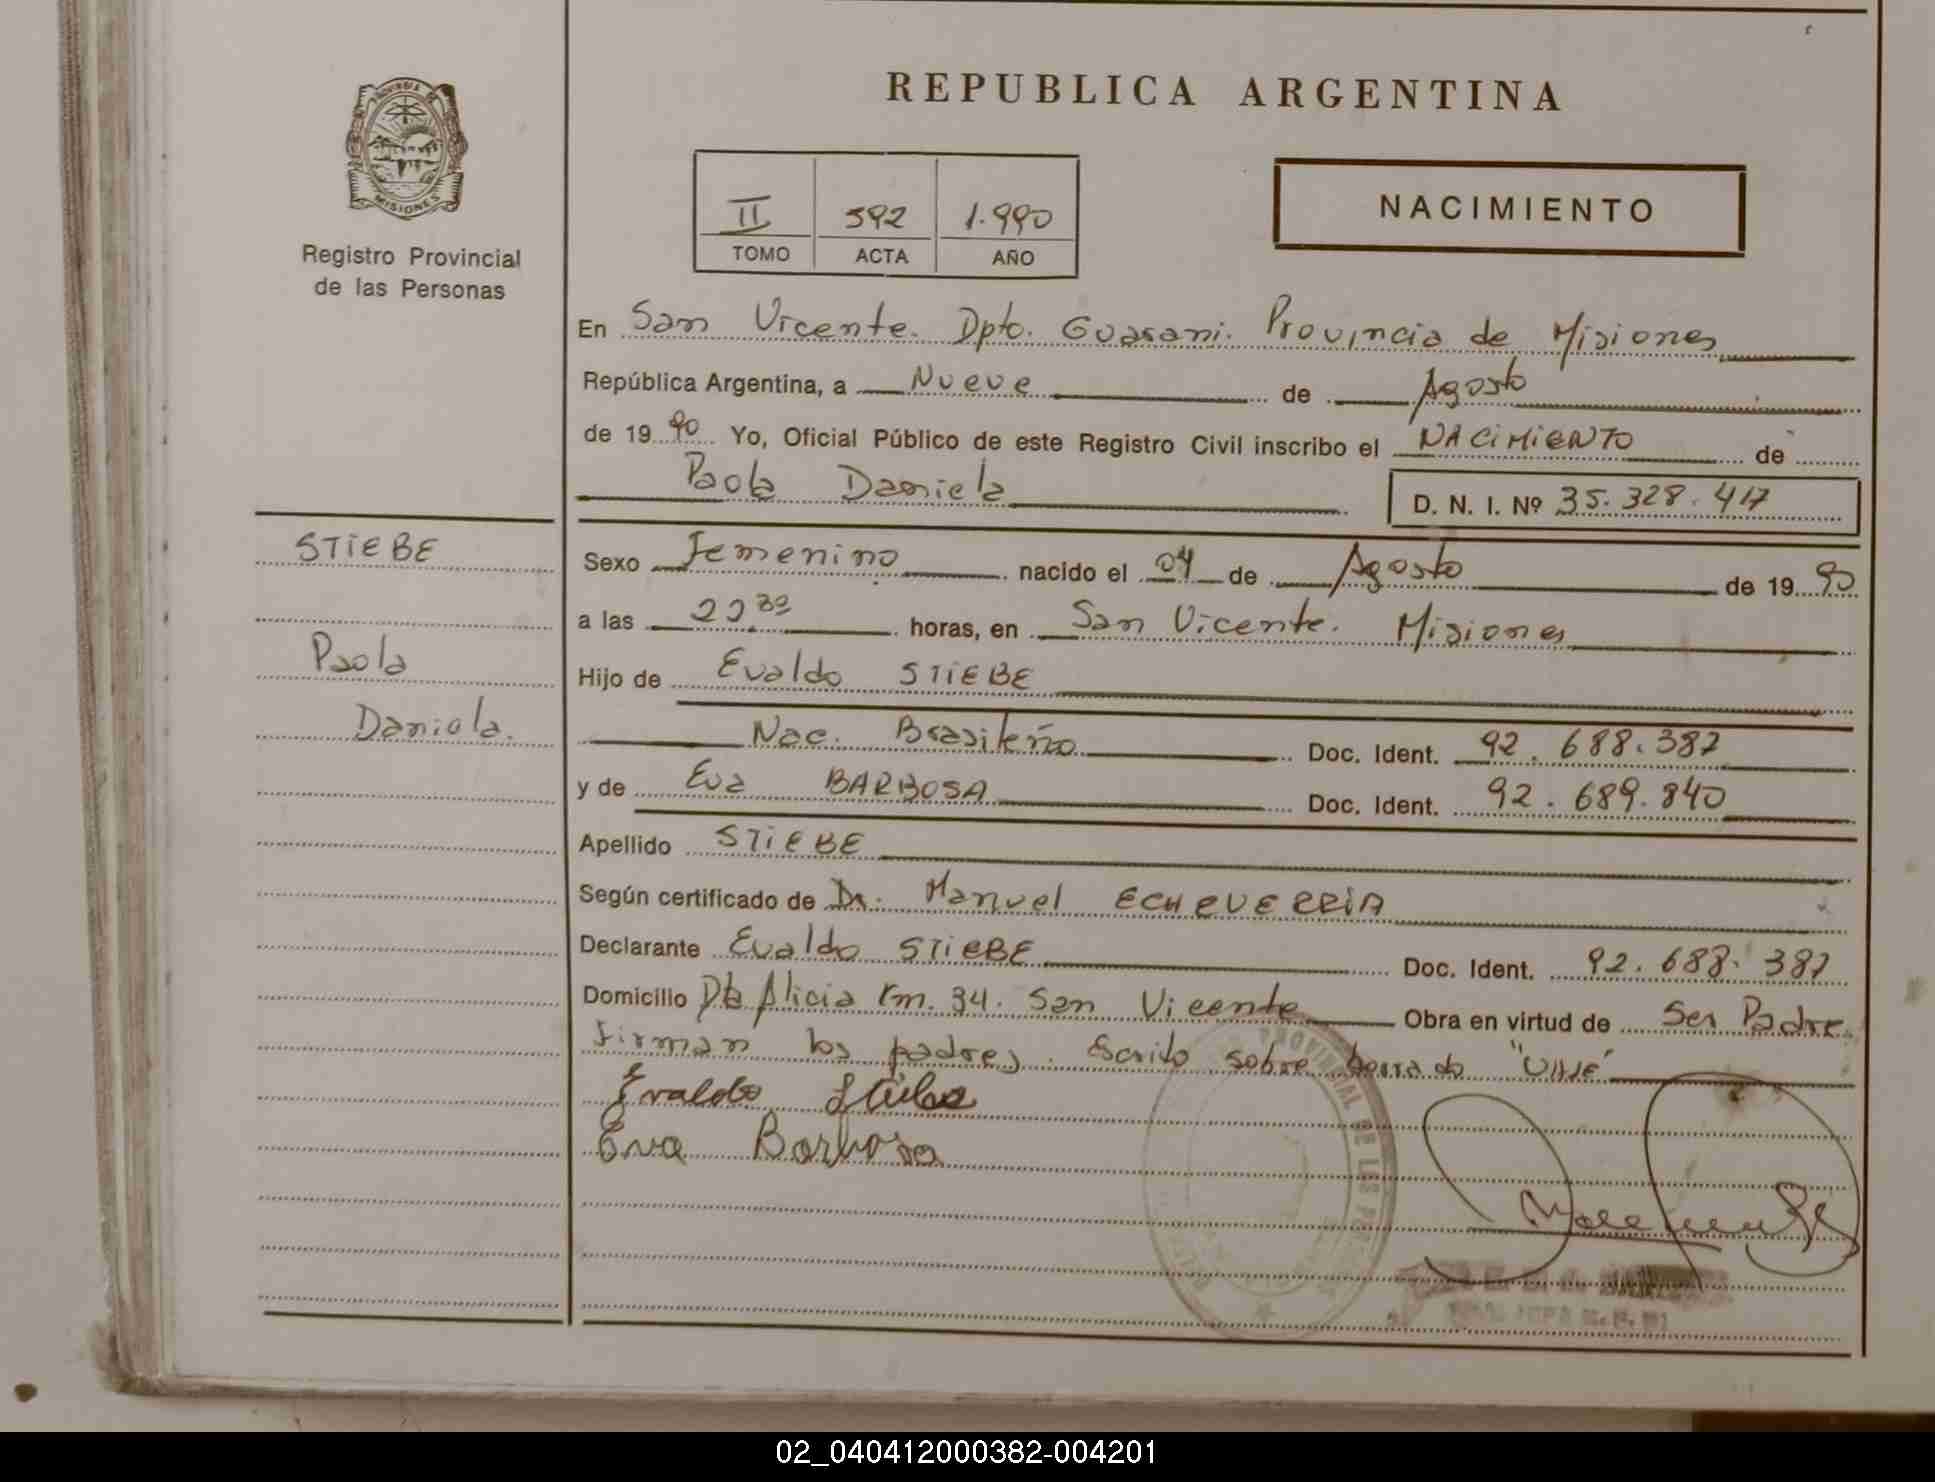 PROVINCIA DE
MISIONES
Registro Provincial
de las Personas
REPUBLICA ARGENTINA
II 592 1.990
TOMO ACTA AÑO
NACIMIENTO
En San Vicente. Dpto. Guarani. Provincia de Misiones
República Argentina, a Nueve de Agosto
de 19 90 Yo, Oficial Público de este Registro Civil inscribo el NACIMIENTO de
Paola Daniela
D. N. I. Nº 35.328.417
STIEBE
Paola
Daniela.
Sexo Femenino nacido el 04 de Agosto de 19 90
a las 22 30 horas, en San Vicente. Misiones
Hijo de Evaldo STIEBE
Nac. Brasileño Doc. Ident. 92.688.387
y de Eva BARBOSA Doc. Ident. 92.689.840
Apellido STIEBE
Según certificado de Dr. Manuel ECHEVERRIA
Declarante Evaldo STIEBE Doc. Ident. 92.688.387
Domicilio Pto Alicia Km. 34. San Vicente Obra en virtud de Ser Padre
Firman los padres. Escrito sobre borrado
Evaldo Stiebe
Eva Barbosa
PROVINCIAL DE LAS
02_040412000382-004201